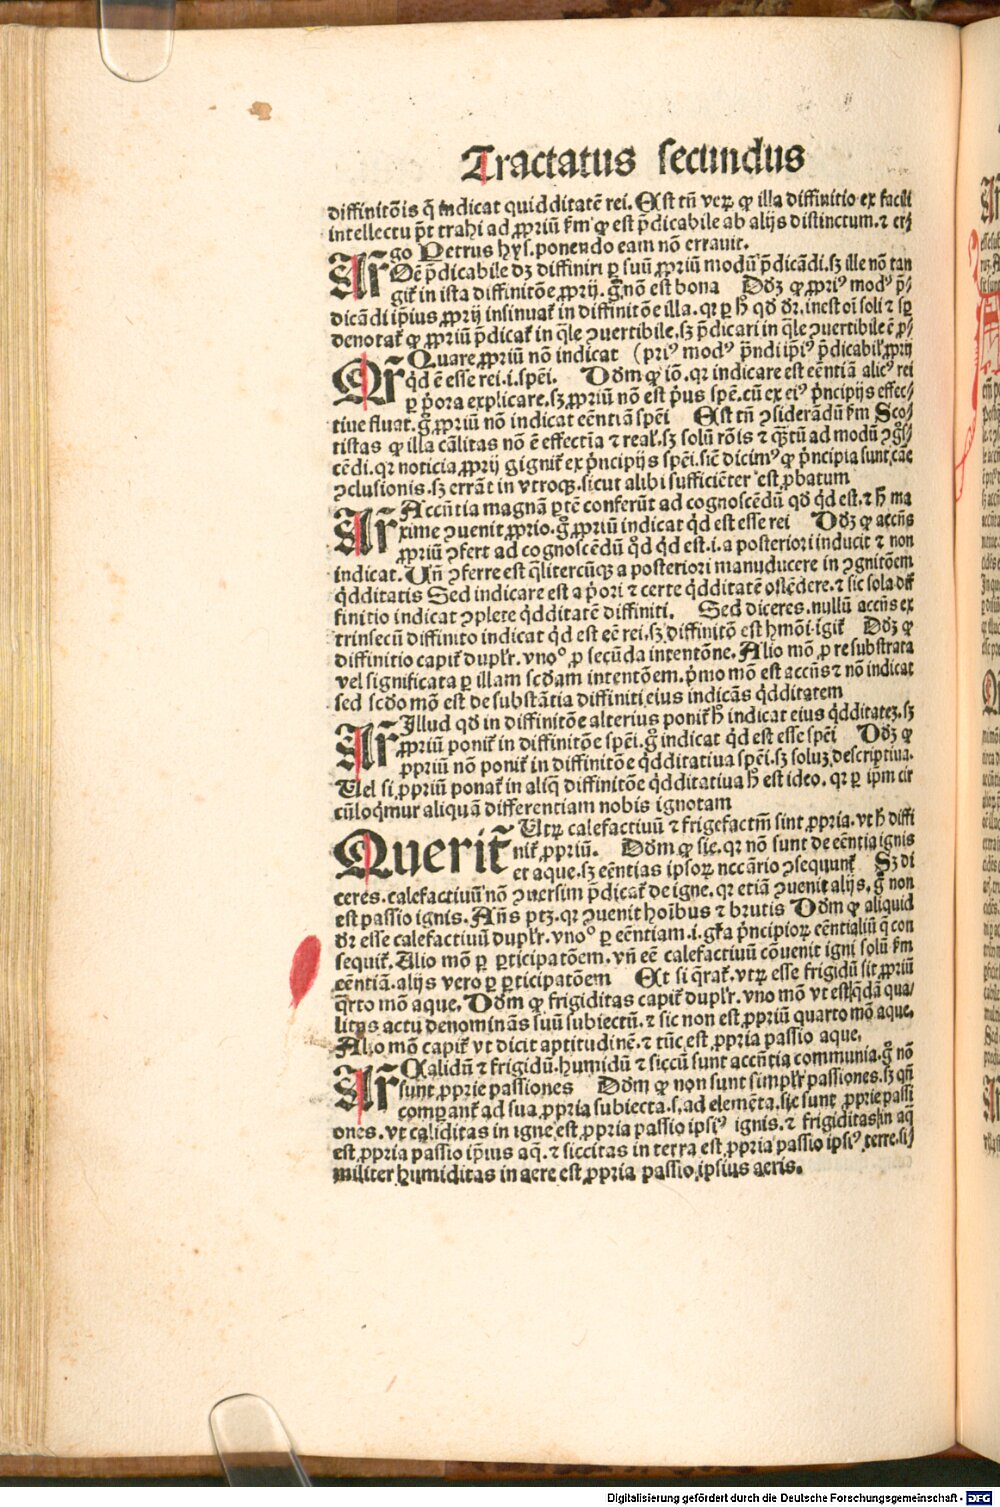 Tractatus secundus
diffinitōis q̄ indicat quidditatē rei. Est tn̄ veꝝ ꝙ illa diffinitio ex facili
intellectu p̄t trahi ad ꝓpriū ẜm ꝙ est p̄dicabile ab alijs distinctum. ⁊ er⸗
go Petrus hys. ponendo eam nō errauit.
Ar̄ Oē p̄dicabile dꝫ diffiniri ꝑ suū ꝓpriū modū p̄dicādi. sꝫ ille nō tan
git̄ in ista diffinitōe ꝓprij. g̊ nō est bona Dd̄ꝫ ꝙ ꝓpriꝰ modꝰ p̄⸗
dicādi ip̄ius ꝓprij insinuat̄ in diffinitōe illa. qꝛ ꝑ h̄ qd̄ dr̄. inest oī soli ⁊ sꝑ
denotat̄ ꝙ ꝓpriū p̄dicat̄ in q̄le ꝯuertibile. sꝫ p̄dicari in q̄le ꝯuertibile ē ꝓ⸗
Quare ꝓpriū nō indicat (priꝰ modꝰ p̄ndi ip̄iꝰ p̄dicabil̄ ꝓprij
Qr̄ qd̄ ē esse rei .i. spēi. Dd̄m ꝙ iō. qꝛ indicare est eēntiā alicꝰ rei
ꝑ p̄ora explicare. sꝫ ꝓpriū nō est p̄us spē. cū ex eiꝰ p̄ncipijs effec⸗
tiue fluat. g̊ ꝓpriū nō indicat eēntiā spēi Est tn̄ ꝯsiderādū ẜm Sco⸗
tistas ꝙ illa cāl̄itas nō ē effectīa ⁊ real̄. sꝫ solū rōis ⁊ qꝫ̄tū ad modū ꝯg̊s⸗
cēdi. qꝛ noticia ꝓprij gignit̄ ex p̄ncipijs spēi. sic̄ dicimꝰ ꝙ p̄ncipia sunt cāe
ꝯclusionis. sꝫ errāt in vtroqꝫ. sicut alibi sufficiēter est ꝓbatum
Ar̄ Accn̄tia magnā ꝑtē conferūt ad cognoscēdū qd̄ qd̄ est. ⁊ h̄ ma
xime ꝯuenit ꝓprio. g̊ ꝓpriū indicat qd̄ est esse rei Dd̄ꝫ ꝙ accn̄s
ꝓpriū ꝯfert ad cognoscēdū qd̄ qd̄ est .i. a posteriori inducit ⁊ non
indicat. Un̄ ꝯferre est q̄litercūqꝫ a posteriori manuducere in ꝯgnitōem
q̇dditatis Sed indicare est a p̄ori ⁊ certe q̇dditatē ostēdere. ⁊ sic sola dif
finitio indicat ꝯplete q̇dditatē diffiniti. Sed diceres. nullū accn̄s ex
trinsecū diffinito indicat qd̄ est eē rei. sꝫ diffinitō est hmōi. igit̄ Dd̄ꝫ ꝙ
diffinitio capit̄ dupl̄r. vnoº ꝓ secūda intentōne. Alio mō ꝓ re substrata
vel significata ꝑ illam scd̄am intentōem. p̄mo mō est accn̄s ⁊ nō indicat
sed scd̄o mō est de substātia diffiniti eius indicās q̇dditatem
Ar̄ Illud qd̄ in diffinitōe alterius ponit̄ h̄ indicat eius q̇dditatez. sꝫ
ꝓpriū ponit̄ in diffinitōe spēi. g̊ indicat qd̄ est esse spēi Dd̄ꝫ ꝙ
ꝓpriū nō ponit̄ in diffinitōe q̇dditatiua spēi. sꝫ soluꝫ descriptiua.
Uel si ꝓpriū ponat̄ in aliq̄ diffinitōe q̇dditatiua h̄ est ideo. qꝛ ꝑ ip̄m cir
cūloq̇mur aliquā differentiam nobis ignotam
Querit̄ Utꝝ calefactiuū ⁊ frigefactīm sint ꝓpria. vt h̄ diffi
nit̄ ꝓpriū. Dd̄m ꝙ sic. qꝛ nō sunt de eēntia ignis
et aque. sꝫ eēntias ipsoꝝ nccārio ꝯsequunt̄ Sꝫ di
ceres. calefactiuū nō ꝯuersim p̄dicat̄ de igne. qꝛ etiā ꝯuenit alijs. g̊ non
est passio ignis. Añs ptꝫ. qꝛ ꝯuenit hoībus ⁊ brutis Dd̄m ꝙ aliquid
dr̄ esse calefactiuū dupl̄r. vnoº ꝑ eēntiam .i. gr̄a p̄ncipioꝝ eēntialiū q̄ con
sequit̄. Alio mō ꝑ ꝑticipatōem. vn̄ eē calefactiuū cōuenit igni solū ẜm
eēntiā. alijs vero ꝑ ꝑticipatōem Et si q̄rat̄. vtꝝ esse frigidū sit ꝓpriū
q̄rto mō aque. Dd̄m ꝙ frigiditas capit̄ dupl̄r. vno mō vt est q̄dā qua⸗
litas actu denominās suū subiectū. ⁊ sic non est ꝓpriū quarto mō aque.
Alio mō capit̄ vt dicit aptitudinē. ⁊ tūc est ꝓpria passio aque.
Ar̄ Calidū ⁊ frigidū. humidū ⁊ siccū sunt accn̄tia communia. g̊ nō
sunt ꝓprie passiones Dd̄m ꝙ non sunt simpl̄r passiones. sꝫ qn̄
comꝑant̄ ad sua ꝓpria subiecta .s. ad elemēta. sic sunt ꝓprie passi
ones. vt caliditas in igne est ꝓpria passio ipsiꝰ ignis. ⁊ frigiditas in aq̄
est ꝓpria passio ip̄ius aq̄. ⁊ siccitas in terra est ꝓpria passio ipsiꝰ terre. si⸗
militer humiditas in aere est ꝓpria passio ipsius aeris.
Digitalisierung gefördert durch die Deutsche Forschungsgemeinschaft - DFG